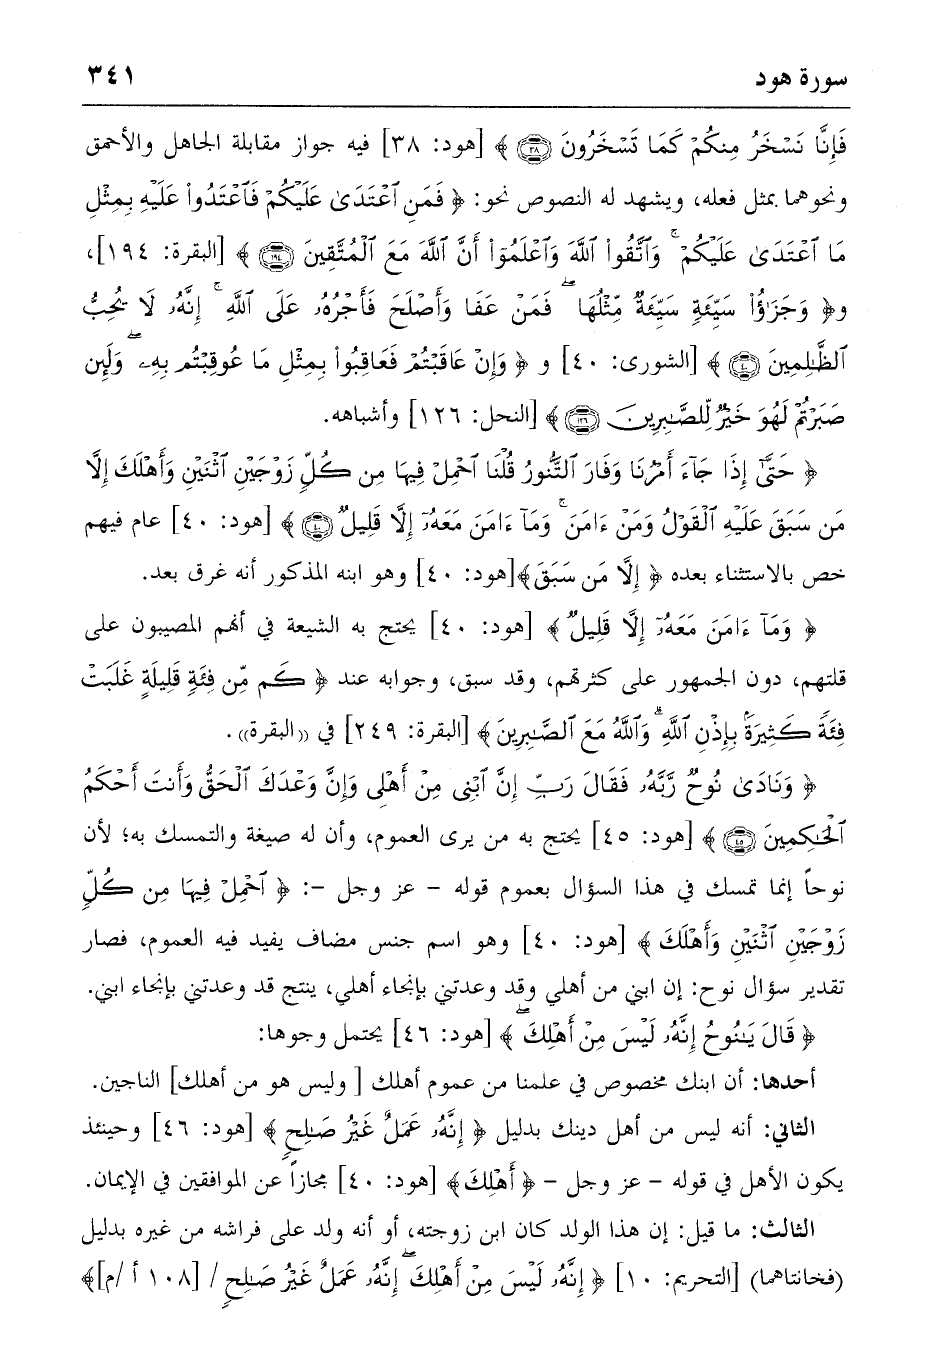 سورة هود
٣٤١
فَإِنَّا نَسْخَرُ مِنكُمْ كَمَا تَسْخَرُونَ ٣٨ ﴾ [هود: ٣٨] فيه جواز مقابلة الجاهل والأحمق
ونحوهما بمثل فعله، ويشهد له النصوص نحو: ﴿ فَمَنِ ٱعْتَدَىٰ عَلَيْكُمْ فَٱعْتَدُوا۟ عَلَيْهِ بِمِثْلِ
مَا ٱعْتَدَىٰ عَلَيْكُمْ ۚ وَٱتَّقُوا۟ ٱللَّهَ وَٱعْلَمُوٓا۟ أَنَّ ٱللَّهَ مَعَ ٱلْمُتَّقِينَ ١٩٤ ﴾ [البقرة: ١٩٤]،
و﴿ وَجَزَٰٓؤُا۟ سَيِّئَةٍ سَيِّئَةٌ مِّثْلُهَا ۖ فَمَنْ عَفَا وَأَصْلَحَ فَأَجْرُهُۥ عَلَى ٱللَّهِ ۚ إِنَّهُۥ لَا يُحِبُّ
ٱلظَّٰلِمِينَ ٤٠ ﴾ [الشورى: ٤٠] و ﴿ وَإِنْ عَاقَبْتُمْ فَعَاقِبُوا۟ بِمِثْلِ مَا عُوقِبْتُم بِهِۦ ۖ وَلَئِن
صَبَرْتُمْ لَهُوَ خَيْرٌ لِّلصَّٰبِرِينَ ١٢٦ ﴾ [النحل: ١٢٦] وأشباهه.
﴿ حَتَّىٰٓ إِذَا جَآءَ أَمْرُنَا وَفَارَ ٱلتَّنُّورُ قُلْنَا ٱحْمِلْ فِيهَا مِن كُلٍّ زَوْجَيْنِ ٱثْنَيْنِ وَأَهْلَكَ إِلَّا
مَن سَبَقَ عَلَيْهِ ٱلْقَوْلُ وَمَنْ ءَامَنَ ۚ وَمَآ ءَامَنَ مَعَهُۥٓ إِلَّا قَلِيلٌ ٤٠ ﴾ [هود: ٤٠] عام فيهم
خص بالاستثناء بعده ﴿ إِلَّا مَن سَبَقَ﴾[هود: ٤٠] وهو ابنه المذكور أنه غرق بعد.
﴿ وَمَآ ءَامَنَ مَعَهُۥٓ إِلَّا قَلِيلٌ ﴾ [هود: ٤٠] يحتج به الشيعة في أنهم المصيبون على
قلتهم، دون الجمهور على كثرتهم، وقد سبق، وجوابه عند ﴿ كَم مِّن فِئَةٍ قَلِيلَةٍ غَلَبَتْ
فِئَةً كَثِيرَةًۢ بِإِذْنِ ٱللَّهِ ۗ وَٱللَّهُ مَعَ ٱلصَّٰبِرِينَ ﴾ [البقرة: ٢٤٩] في ((البقرة)).
﴿ وَنَادَىٰ نُوحٌ رَّبَّهُۥ فَقَالَ رَبِّ إِنَّ ٱبْنِى مِنْ أَهْلِى وَإِنَّ وَعْدَكَ ٱلْحَقُّ وَأَنتَ أَحْكَمُ
ٱلْحَٰكِمِينَ ٤٥ ﴾ [هود: ٤٥] يحتج به من يرى العموم، وأن له صيغة والتمسك به؛ لأن
نوحاً إنما تمسك في هذا السؤال بعموم قوله - عز وجل -: ﴿ ٱحْمِلْ فِيهَا مِن كُلٍّ
زَوْجَيْنِ ٱثْنَيْنِ وَأَهْلَكَ ﴾ [هود: ٤٠] وهو اسم جنس مضاف يفيد فيه العموم، فصار
تقدير سؤال نوح: إن ابني من أهلي وقد وعدتني بإنجاء أهلي، ينتج قد وعدتني بإنجاء ابني.
﴿ قَالَ يَٰنُوحُ إِنَّهُۥ لَيْسَ مِنْ أَهْلِكَ ۖ ﴾ [هود: ٤٦] يحتمل وجوها:
أحدها: أن ابنك مخصوص في علمنا من عموم أهلك [ وليس هو من أهلك] الناجين.
الثاني: أنه ليس من أهل دينك بدليل ﴿ إِنَّهُۥ عَمَلٌ غَيْرُ صَٰلِحٍ ﴾ [هود: ٤٦] وحينئذ
يكون الأهل في قوله - عز وجل - ﴿ أَهْلِكَ﴾ [هود: ٤٠] مجازاً عن الموافقين في الإيمان.
الثالث: ما قيل: إن هذا الولد كان ابن زوجته، أو أنه ولد على فراشه من غيره بدليل
(فخانتاهما) [التحريم: ١٠] ﴿ إِنَّهُۥ لَيْسَ مِنْ أَهْلِكَ ۖ إِنَّهُۥ عَمَلٌ غَيْرُ صَٰلِحٍ / [١٠٨ أ /م]﴾